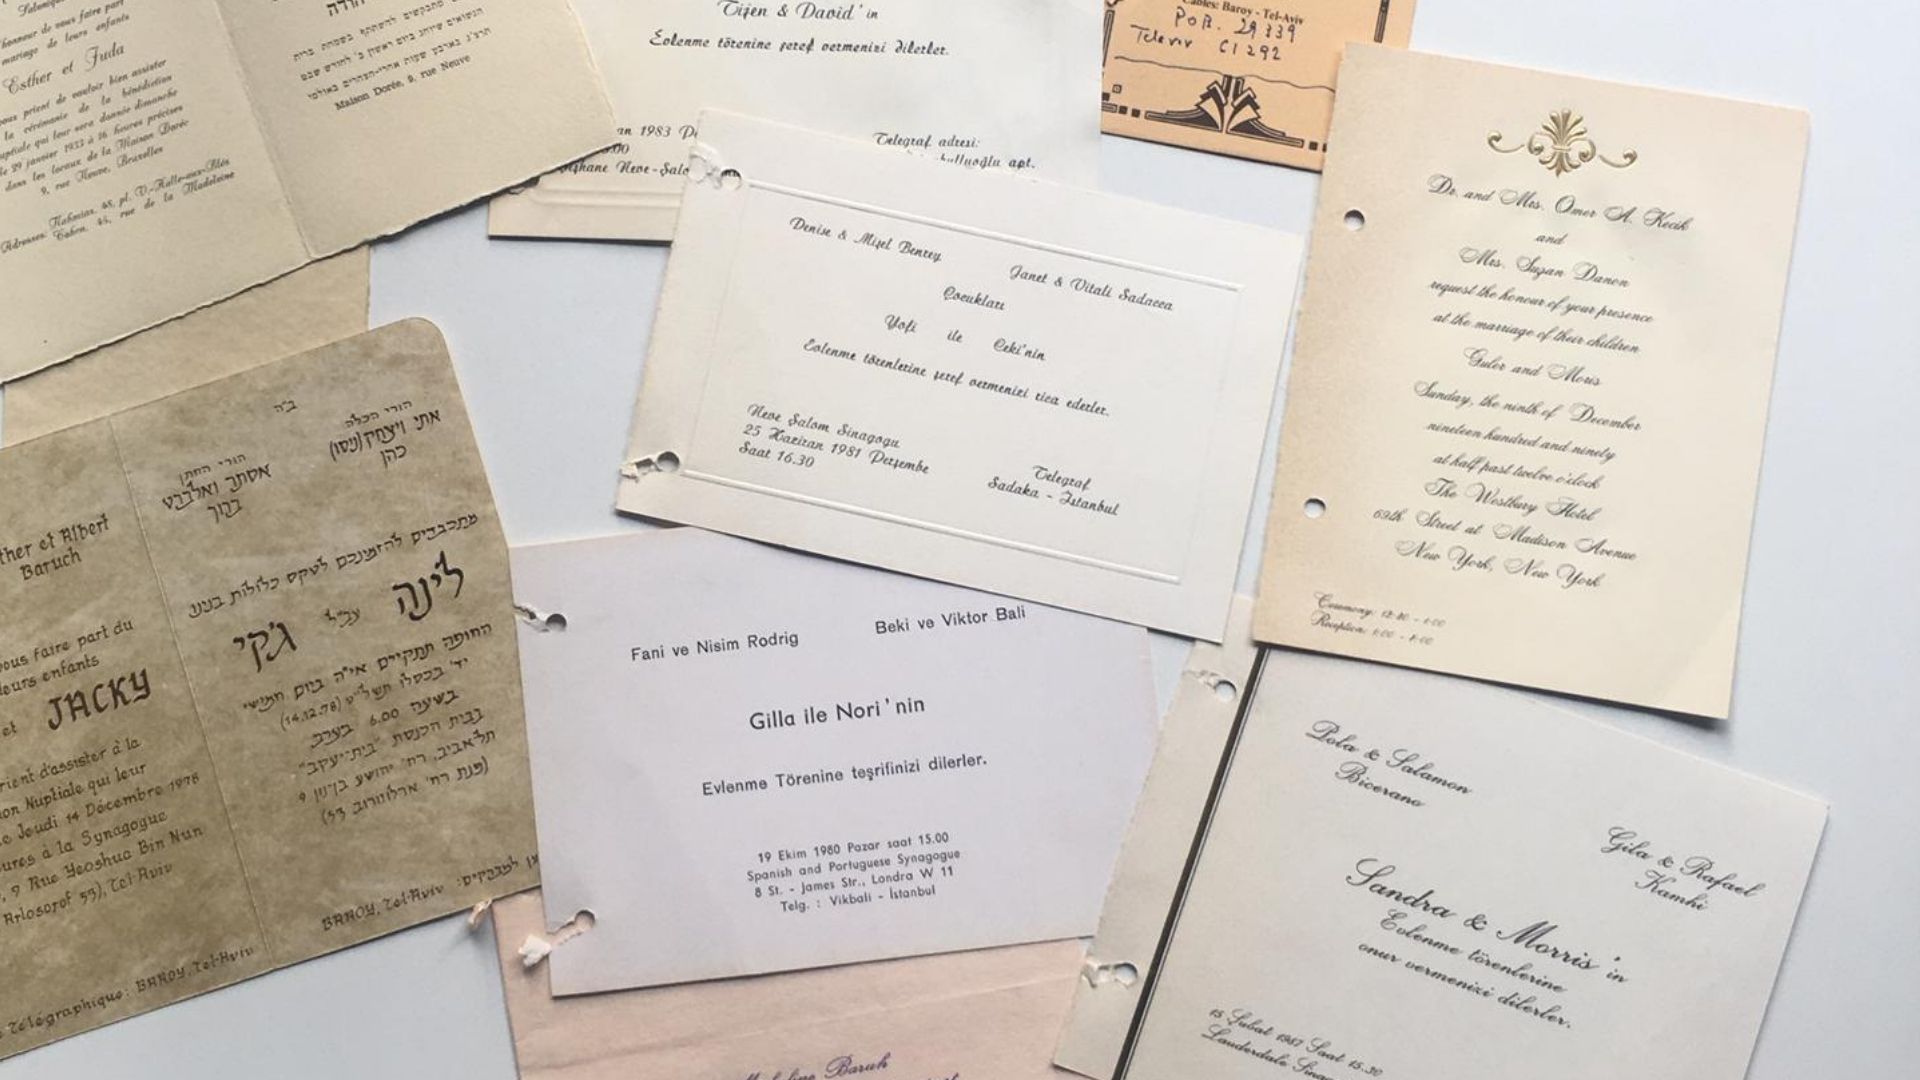 Esther et Juda
vous prient de vouloir bien assister
à la cérémonie de la bénédiction
nuptiale qui leur sera donnée dimanche
le 29 janvier 1933 à 16 heures précises
dans les locaux de la Maison Dorée
9, rue Neuve, Bruxelles
Adresses:
Cahen, 45, rue de la Madeleine
Maison Dorée, 9, rue Neuve
Tijen & David'in
Evlenme törenine şeref vermenizi dilerler.
1983
Telgraf adresi:
apt.
Cables: Baroy - Tel-Aviv
P.O.B. 29339
Tel Aviv 61292
Denise & Mişel Benrey
Janet & Vitali Sadacca
Çocukları
Yofi ile Ceki'nin
Evlenme törenlerine şeref vermenizi rica ederler.
Neve Şalom Sinagogu
25 Haziran 1981 Perşembe
Saat 16.30
Telegraf
Sadaka - İstanbul
Dr. and Mrs. Omer A. Kecik
and
Mrs. Suzan Danon
request the honour of your presence
at the marriage of their children
Guler and Moris
Sunday, the ninth of December
nineteen hundred and ninety
at half past twelve o'clock
The Westbury Hotel
69th Street at Madison Avenue
New York, New York
Ceremony: 12:30 - 1:00
Reception: 1:00 - 4:00
ther et Albert
Baruch
vous faire part du
leurs enfants
et JACKY
rient d'assister à la
on Nuptiale qui leur
e Jeudi 14 Décembre 1978
ures à la Synagogue
, 9 Rue Yeoshua Bin Nun
Arlosorof 53), Tel-Aviv
Télégraphique: BAROY, Tel-Aviv
ב"ה
הורי הכלה
אתי ויצחק (ניסו)
כהן
הורי החתן
אסתר ואלברט
ברוך
מתכבדים להזמינכם לטקס כלולות בניהם
לינה
עב"ל
ג'קי
החופה תתקיים אי"ה ביום חמישי
יד' בכסלו תשל"ט (14.12.78)
בשעה 6.00 בערב
בבית הכנסת "בית-יעקב"
תל-אביב, רח' יהושע בן-נון 9
(פנת רח' ארלוזורוב 53)
BAROY, Tel-Aviv :למברקים
Fani ve Nisim Rodrig
Beki ve Viktor Bali
Gilla ile Nori'nin
Evlenme Törenine teşrifinizi dilerler.
19 Ekim 1980 Pazar saat 15.00
Spanish and Portuguese Synagogue
8 St. - James Str., Londra W 11
Telg. : Vikbali - İstanbul
Pola & Salamon
Bicerano
Gila & Rafael
Kamhi
Sandra & Morris'in
Evlenme törenlerine
onur vermenizi dilerler.
15 Şubat 1987 Saat 15.30
Lauderdale
Baruh